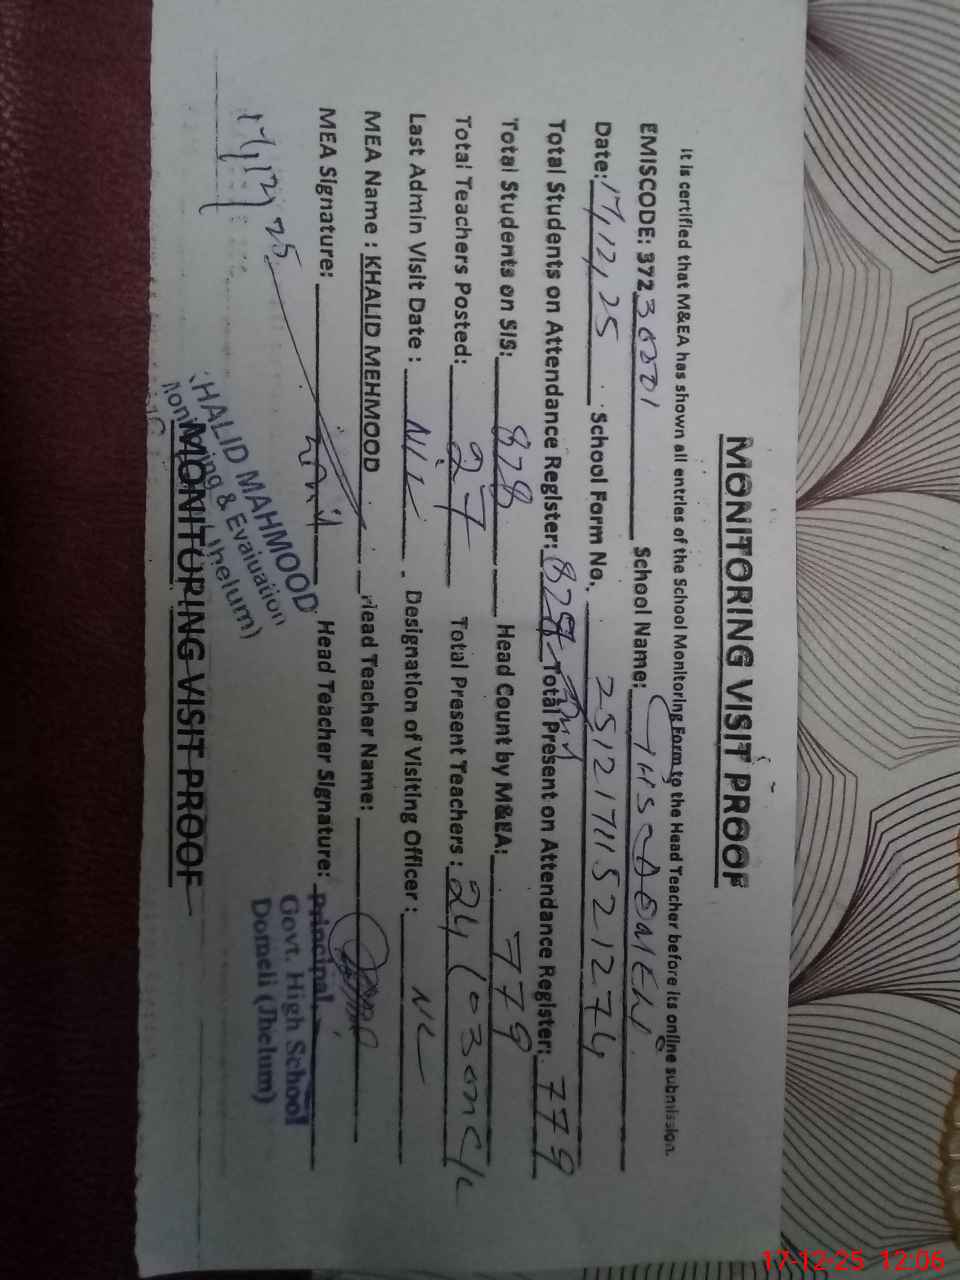 MONITORING VISIT PROOF
It is certified that M&EA has shown all entries of the School Monitoring Form to the Head Teacher before its online submission.
EMISCODE: 372 School Name: GHS
Date: 17,12,25 School Form No. 25121711521274
Total Students on Attendance Register: Total Present on Attendance Register: 779
Total Students on SIS: 878 Head Count by M&EA: 779
Total Teachers Posted: 27 Total Present Teachers : 24 (03 on C/L
Last Admin Visit Date : NIL Designation of Visiting Officer : NIL
MEA Name : KHALID MEHMOOD Head Teacher Name:
MEA Signature: Head Teacher Signature:
17,12,25
KHALID MAHMOOD
Monitoring & Evaluation
Jhelum)
Principal,
Govt. High School
Domeli (Jhelum)
MONITORING VISIT PROOF
17-12-25 12:06